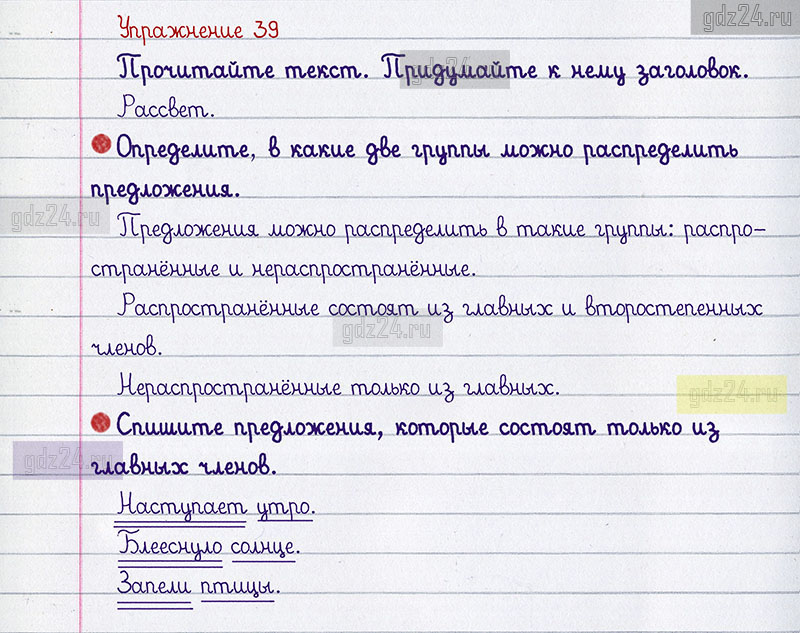 gdz24.ru
Упражнение 39
Прочитайте текст. Придумайте к нему заголовок.
gdz24.ru
Рассвет.
Определите, в какие две группы можно распределить
предложения.
gdz24.ru
Предложения можно распределить в такие группы: распро-
странённые и нераспространённые.
Распространённые состоят из главных и второстепенных
gdz24.ru
членов.
Нераспространённые только из главных.
gdz24.ru
Спишите предложения, которые состоят только из
главных членов.
gdz24.ru
Наступает утро.
Блееснуло солнце.
Запели птицы.